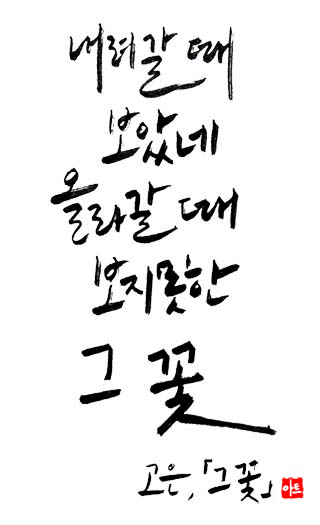 내려갈 때
보았네
올라갈 때
보지 못한
그 꽃
고은, 「그 꽃」 아트